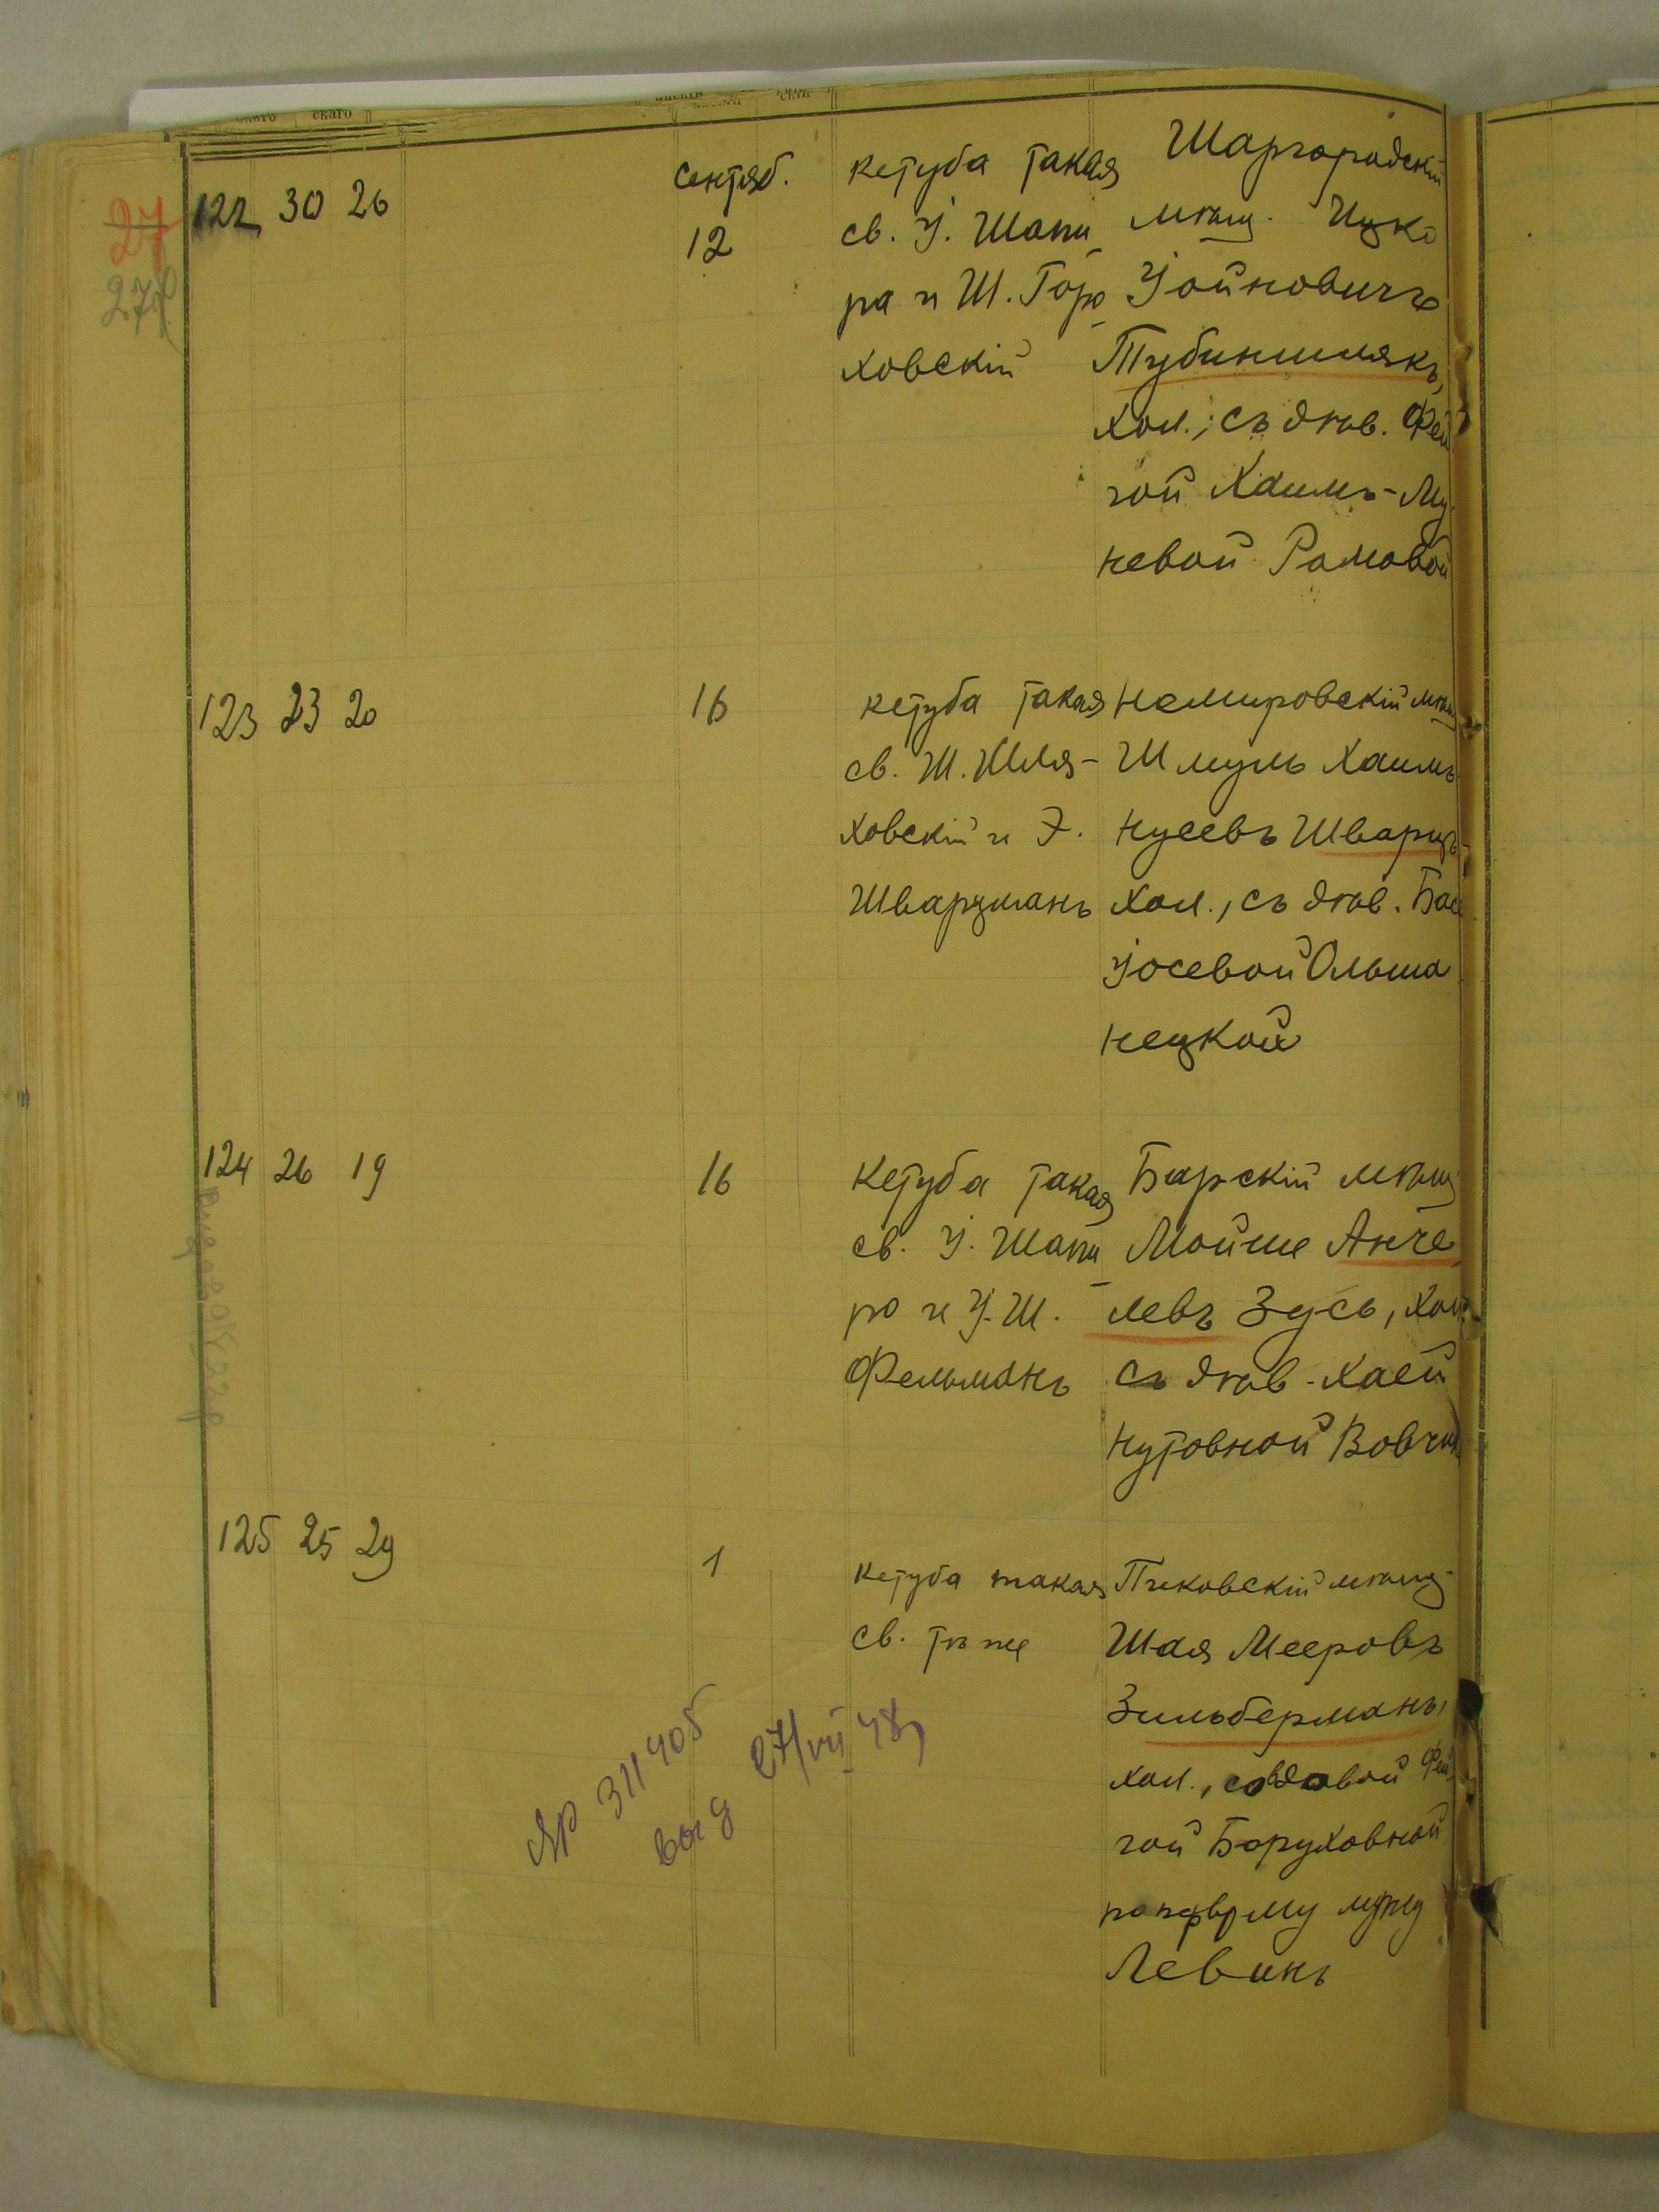 скаго
27
278
122 30 26
Сентяб.
12
кетуба такая
св. І. Шапи
ра и Ш. Горо
ховскій
Шаргородскій
мѣщ. Ицко
Іойновичъ
Тубиншлякъ,
хол., съ дѣв. Фей
гой Хаимъ-Му
невой Рамовой
123 23 20
16
кетуба такая
св. Ш. Шля-
ховскій и Э.
Шварцманъ
Немировскій мѣщ
Шмуль Хаимъ
Нусевъ Шварцъ
хол., съ дѣв. Бас
Іосевой Ольша
нецкой
124 26 19
16
Кетуба такая
св. І. Шапи
ро и І. Ш.
Фельманъ
Барскій мѣщ
Мойше Анче
левъ Зусь, хол.
съ дѣв. Хаей
Нутовной Вовчи
125 25 29
1
кетуба такая
св. тѣ же
Пиковскій мѣщ.
Шая Мееровъ
Зильберманъ,
хол., со вдовой Фей
гой Боруховной
по первому мужу
Левинъ
ЯР 311405
выд 27/VII 48